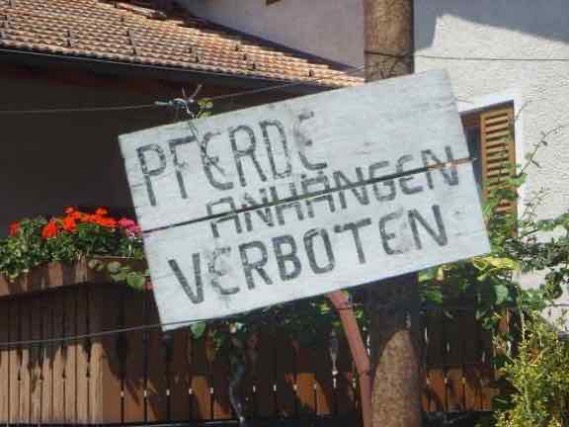 PFERDE
ANHÄNGEN
VERBOTEN